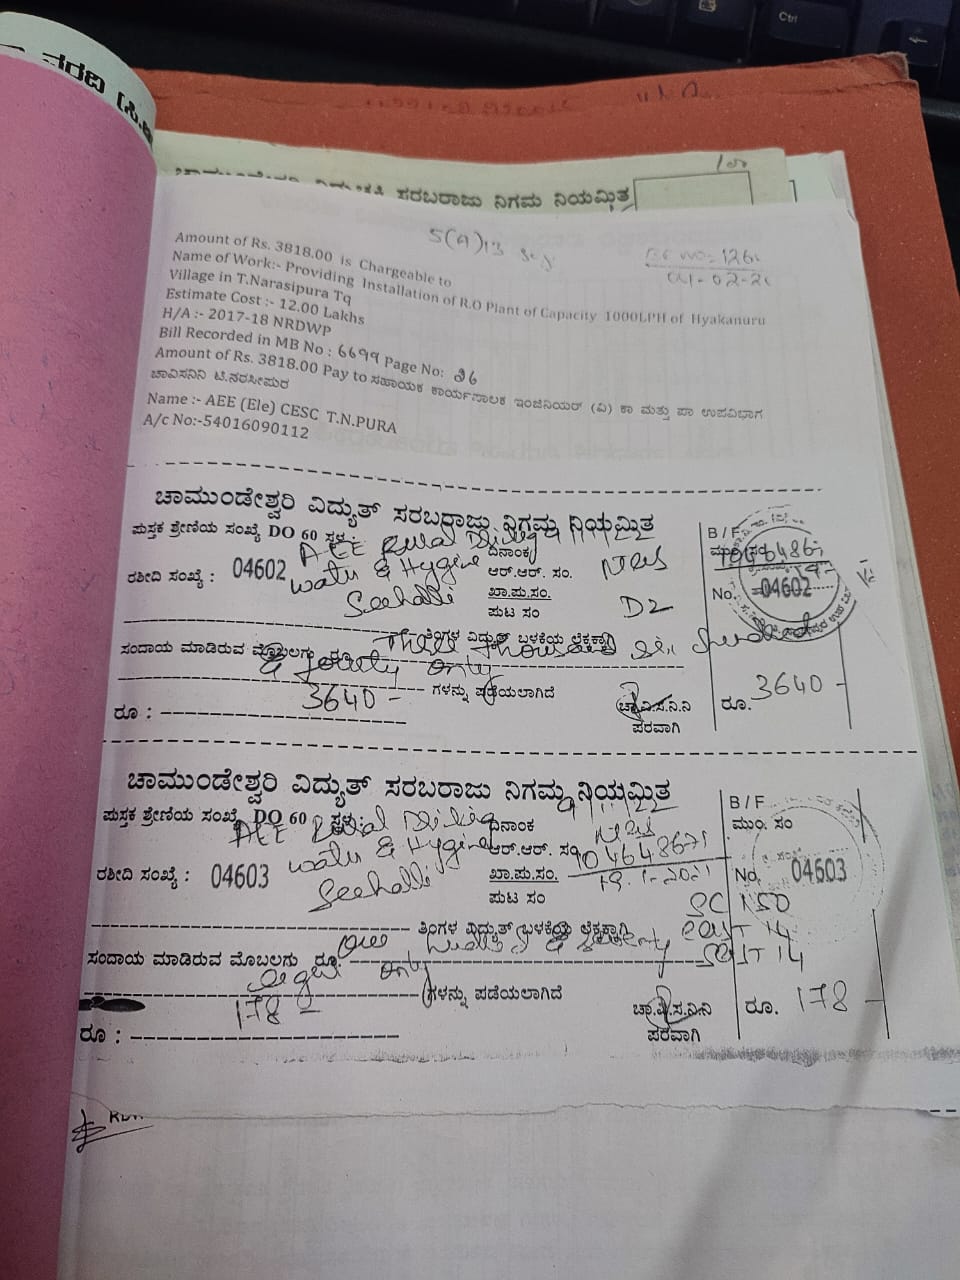 ಸರಬರಾಜು ನಿಗಮ ನಿಯಮಿತ
5(A)13
Amount of Rs. 3818.00 is Chargeable to
Name of Work:- Providing Installation of R.O Plant of Capacity 1000LPH of Hyakanuru
Village in T.Narasipura Tq
Estimate Cost :- 12.00 Lakhs
H/A :- 2017-18 NRDWP
Bill Recorded in MB No : 6699 Page No: 36
Amount of Rs. 3818.00 Pay to ಸಹಾಯಕ ಕಾರ್ಯಪಾಲಕ ಇಂಜಿನಿಯರ್ (ವಿ) ಕಾ ಮತ್ತು ಪಾ ಉಪವಿಭಾಗ
ಚಾವಿಸನಿನಿ ಟಿ.ನರಸೀಪುರ
Name :- AEE (Ele) CESC T.N.PURA
A/c No:-54016090112
ಚಾಮುಂಡೇಶ್ವರಿ ವಿದ್ಯುತ್ ಸರಬರಾಜು ನಿಗಮ ನಿಯಮಿತ
ಪುಸ್ತಕ ಶ್ರೇಣಿಯ ಸಂಖ್ಯೆ DO 60 ಸ್ಥಳ : ದಿನಾಂಕ B/F
AEE Rural Drinking
ರಶೀದಿ ಸಂಖ್ಯೆ : 04602 Water & Hygine ಆರ್.ಆರ್. ಸಂ. No. 04602
Seehalli ಖಾ.ಪು.ಸಂ.
ಪುಟ ಸಂ D2
ತಿಂಗಳ ವಿದ್ಯುತ್ ಬಳಕೆಯ ಲೆಕ್ಕಕ್ಕಾಗಿ
ಸಂದಾಯ ಮಾಡಿರುವ ಮೊಬಲಗು ರೂ. Three Thousand Six hundred
& fourty only
ಗಳನ್ನು ಪಡೆಯಲಾಗಿದೆ
ರೂ : 3640 - ಚಾ.ವಿ.ಸ.ನಿ.ನಿ ರೂ. 3640 -
ಪರವಾಗಿ
ಚಾಮುಂಡೇಶ್ವರಿ ವಿದ್ಯುತ್ ಸರಬರಾಜು ನಿಗಮ ನಿಯಮಿತ
ಪುಸ್ತಕ ಶ್ರೇಣಿಯ ಸಂಖ್ಯೆ DO 60 ಸ್ಥಳ : ದಿನಾಂಕ B/F
AEE Rural Drinking ಮುಂ. ಸಂ
Water & Hygine ಆರ್.ಆರ್. ಸಂ
ರಶೀದಿ ಸಂಖ್ಯೆ : 04603 Seehalli ಖಾ.ಪು.ಸಂ. No. 04603
ಪುಟ ಸಂ SC 150
ತಿಂಗಳ ವಿದ್ಯುತ್ ಬಳಕೆಯ ಲೆಕ್ಕಕ್ಕಾಗಿ CGST 14
ಸಂದಾಯ ಮಾಡಿರುವ ಮೊಬಲಗು ರೂ. One hundred & seventy SGST 14
eight only
ಗಳನ್ನು ಪಡೆಯಲಾಗಿದೆ
ರೂ : 178 - ಚಾ.ವಿ.ಸ.ನಿ.ನಿ ರೂ. 178 -
ಪರವಾಗಿ